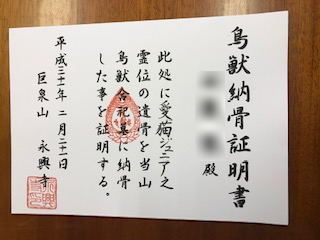 鳥獣納骨証明書
殿
此処に愛猫ジュニア之
霊位の遺骨を当山
鳥獣合祀墓に納骨
した事を証明する。
平成三十一年 二月二十一日
巨泉山 永興寺